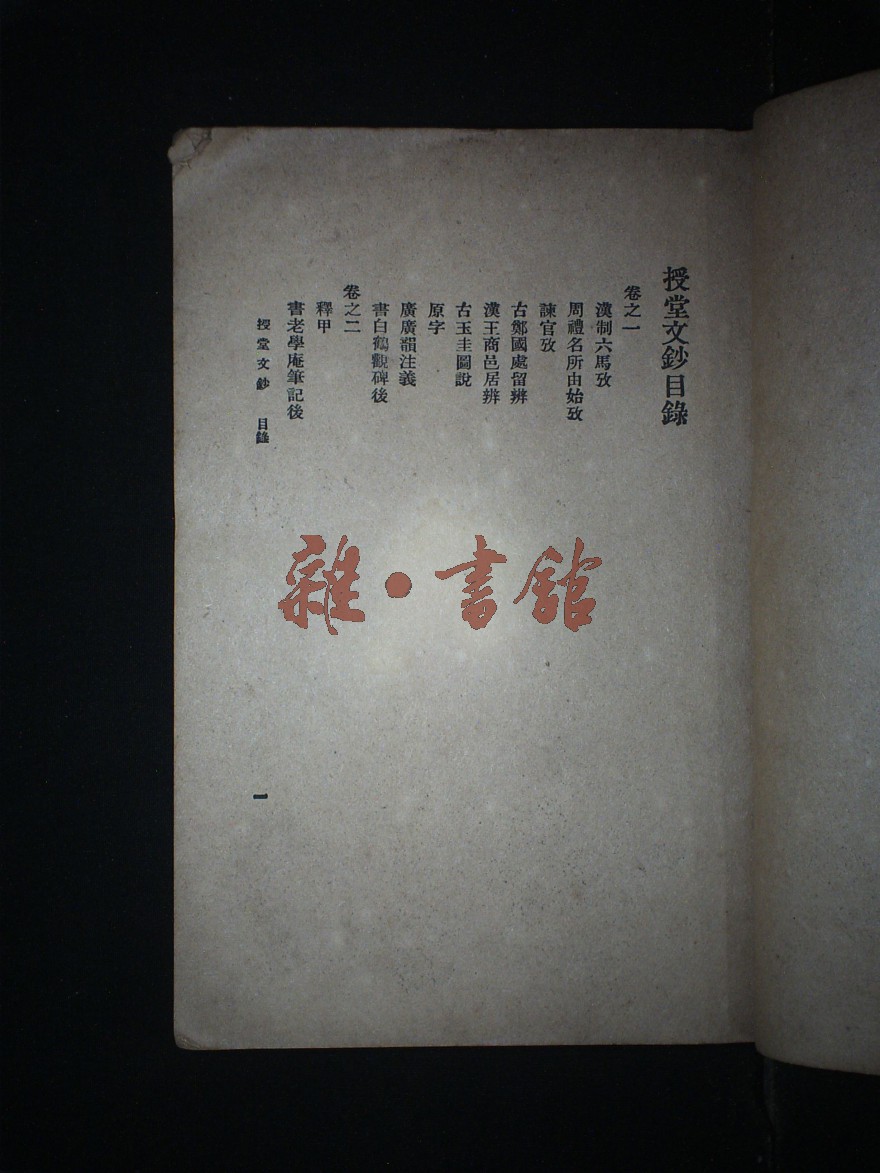 授堂文鈔目錄
卷之一
漢制六馬攷
周禮名所由始攷
諫官攷
古鄭國處留辨
漢王商邑居辨
古玉圭圖說
原字
廣廣韻注義
書白鶴觀碑後
卷之二
釋甲
書老學庵筆記後
授堂文鈔 目錄
一
雜·書館